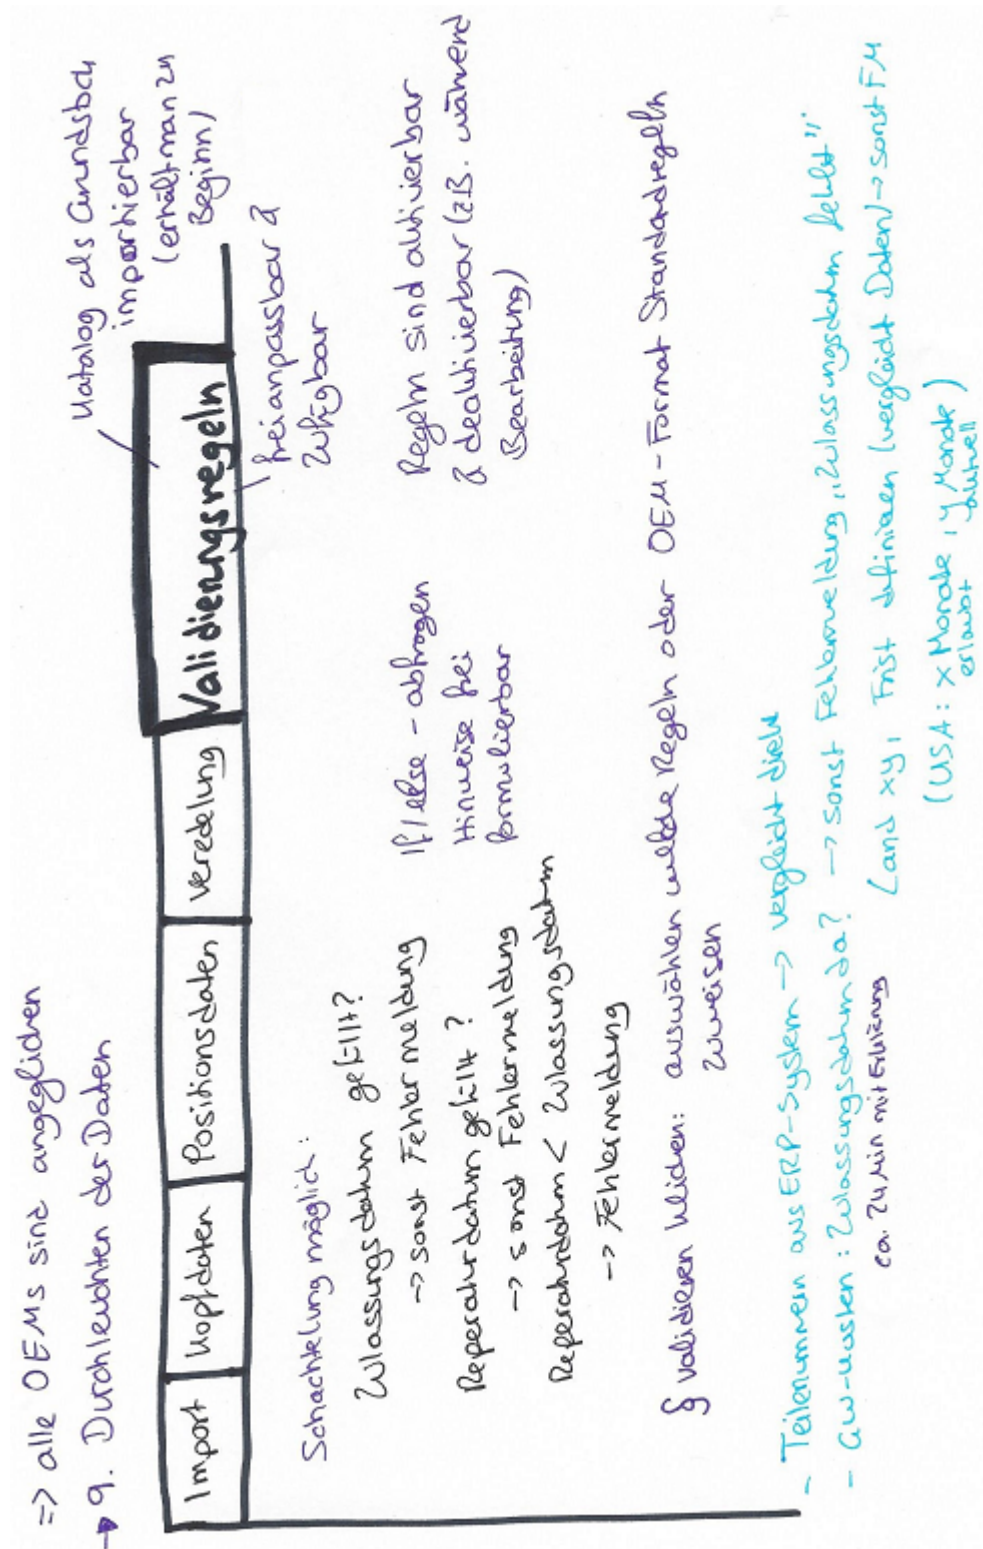 => alle OEMs sind angeglichen
→ 9. Durchleuchten der Daten
Katalog als Grundstock
importierbar
(erhält man zu
Beginn)
Import
Kopfdaten
Positionsdaten
Veredelung
Validierungsregeln
frei anpassbar &
zufügbar
Schachtelung möglich:
Zulassungsdatum gefüllt?
-> sonst Fehlermeldung
Reperaturdatum gefüllt?
-> sonst Fehlermeldung
Reperaturdatum < Zulassungsdatum
-> Fehlermeldung
If/else - abfragen
Hinweise frei
formulierbar
Regeln sind aktivierbar
& deaktivierbar (zB. während
Bearbeitung)
§ validieren klicken: auswählen welche Regeln oder OEM-Format Standardregeln
zuweisen
- Teilenummern aus ERP-System -> vergleicht direkt
- GW-Kosten: Zulassungsdatum da? -> sonst Fehlermeldung „Zulassungsdatum fehlt"
ca. 24 Min mit Erklärung
Land xy, Frist definieren (vergleicht Daten) -> sonst FM
(USA: x Monate, y Monate)
erlaubt aktuell